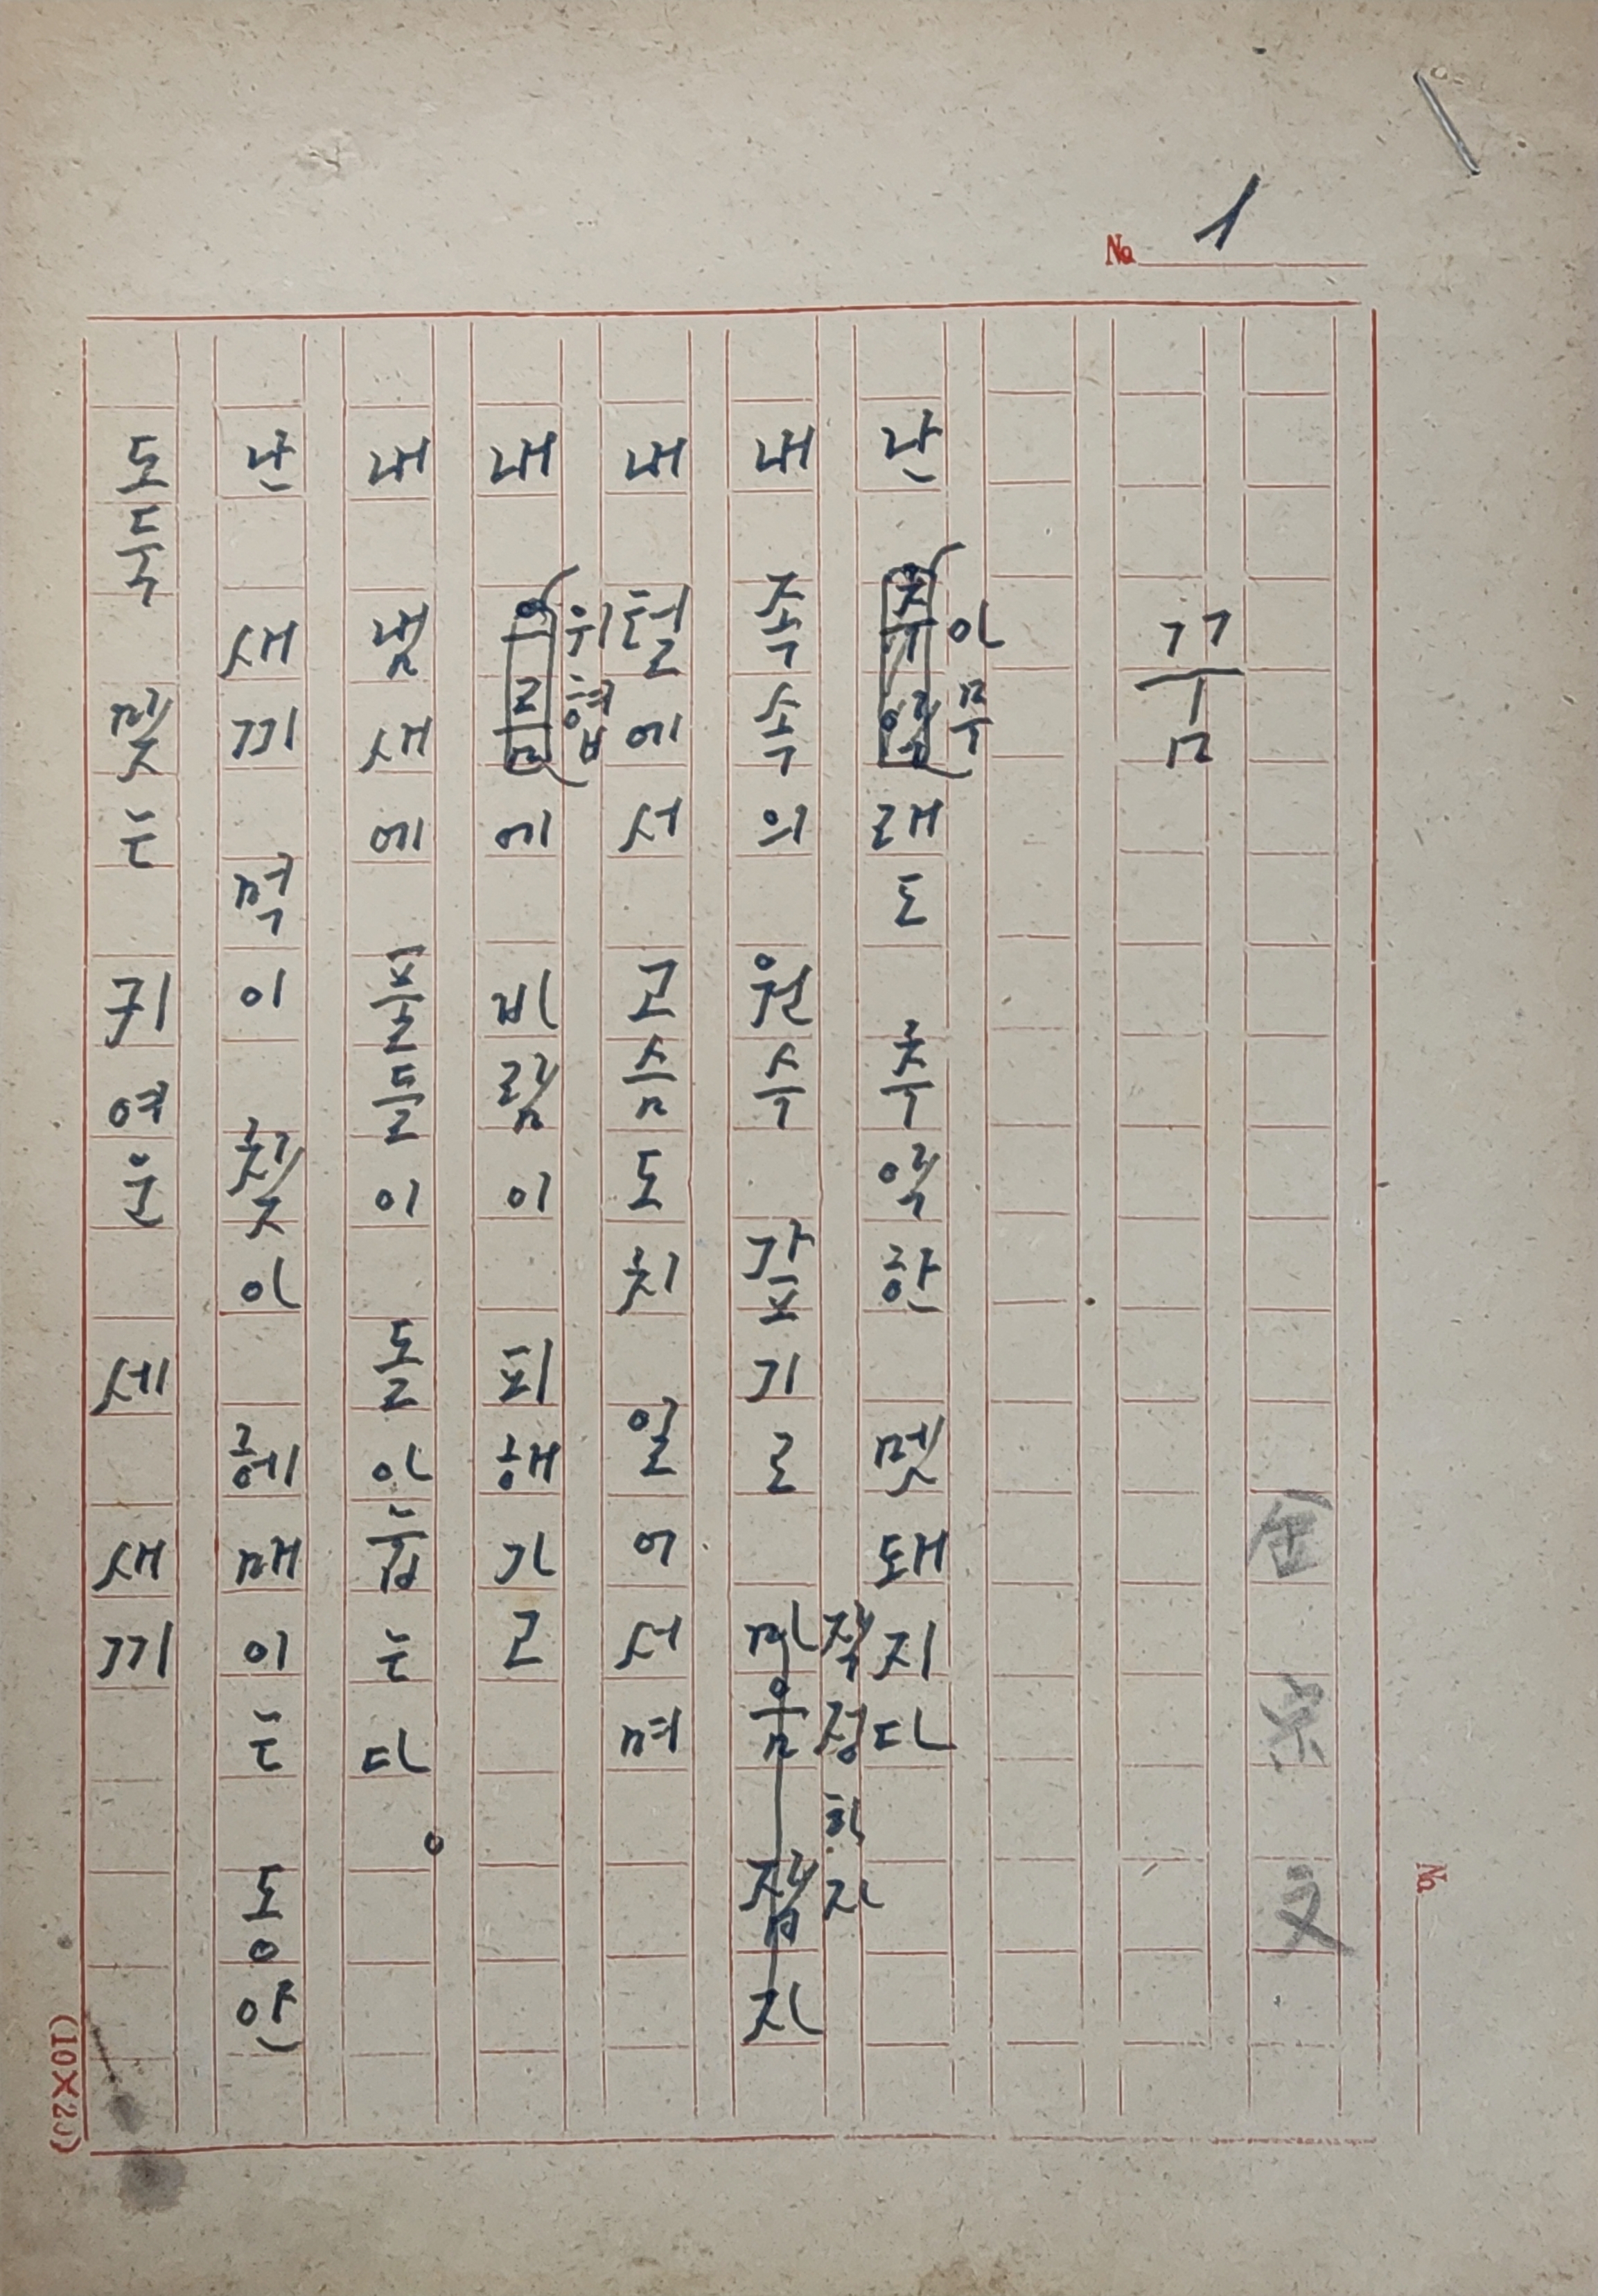 No. 1
金宗文
꿈
아무
난 래도 추악한 멧돼지다
작정하자
내 족속의 원수 갚기로 마음 잡자
내 털에서 고슴도치 일어서며
위협
내 으름에 바람이 피해가고
내 냄새에 풀들이 돌아눕는다。
난 새끼 먹이 찾아 헤매이는 동안
도둑 맞는 귀여운 세 새끼
No.
(10×20)